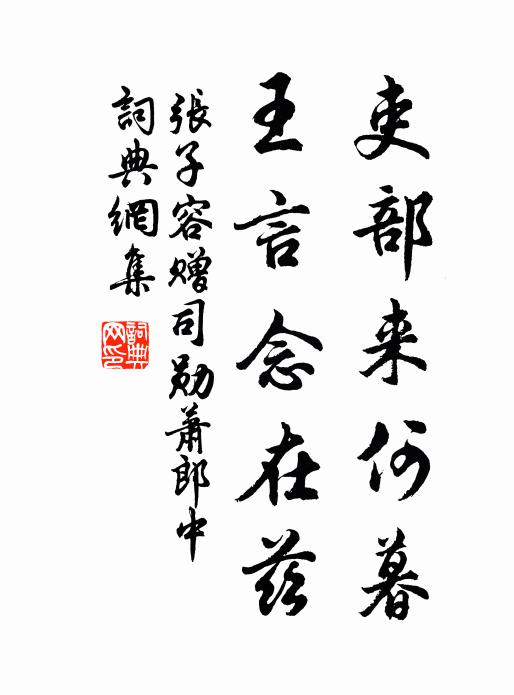 吏部来何暮
王言念在兹
張子容贈司勛蕭郎中
詞典網集
詞典网印